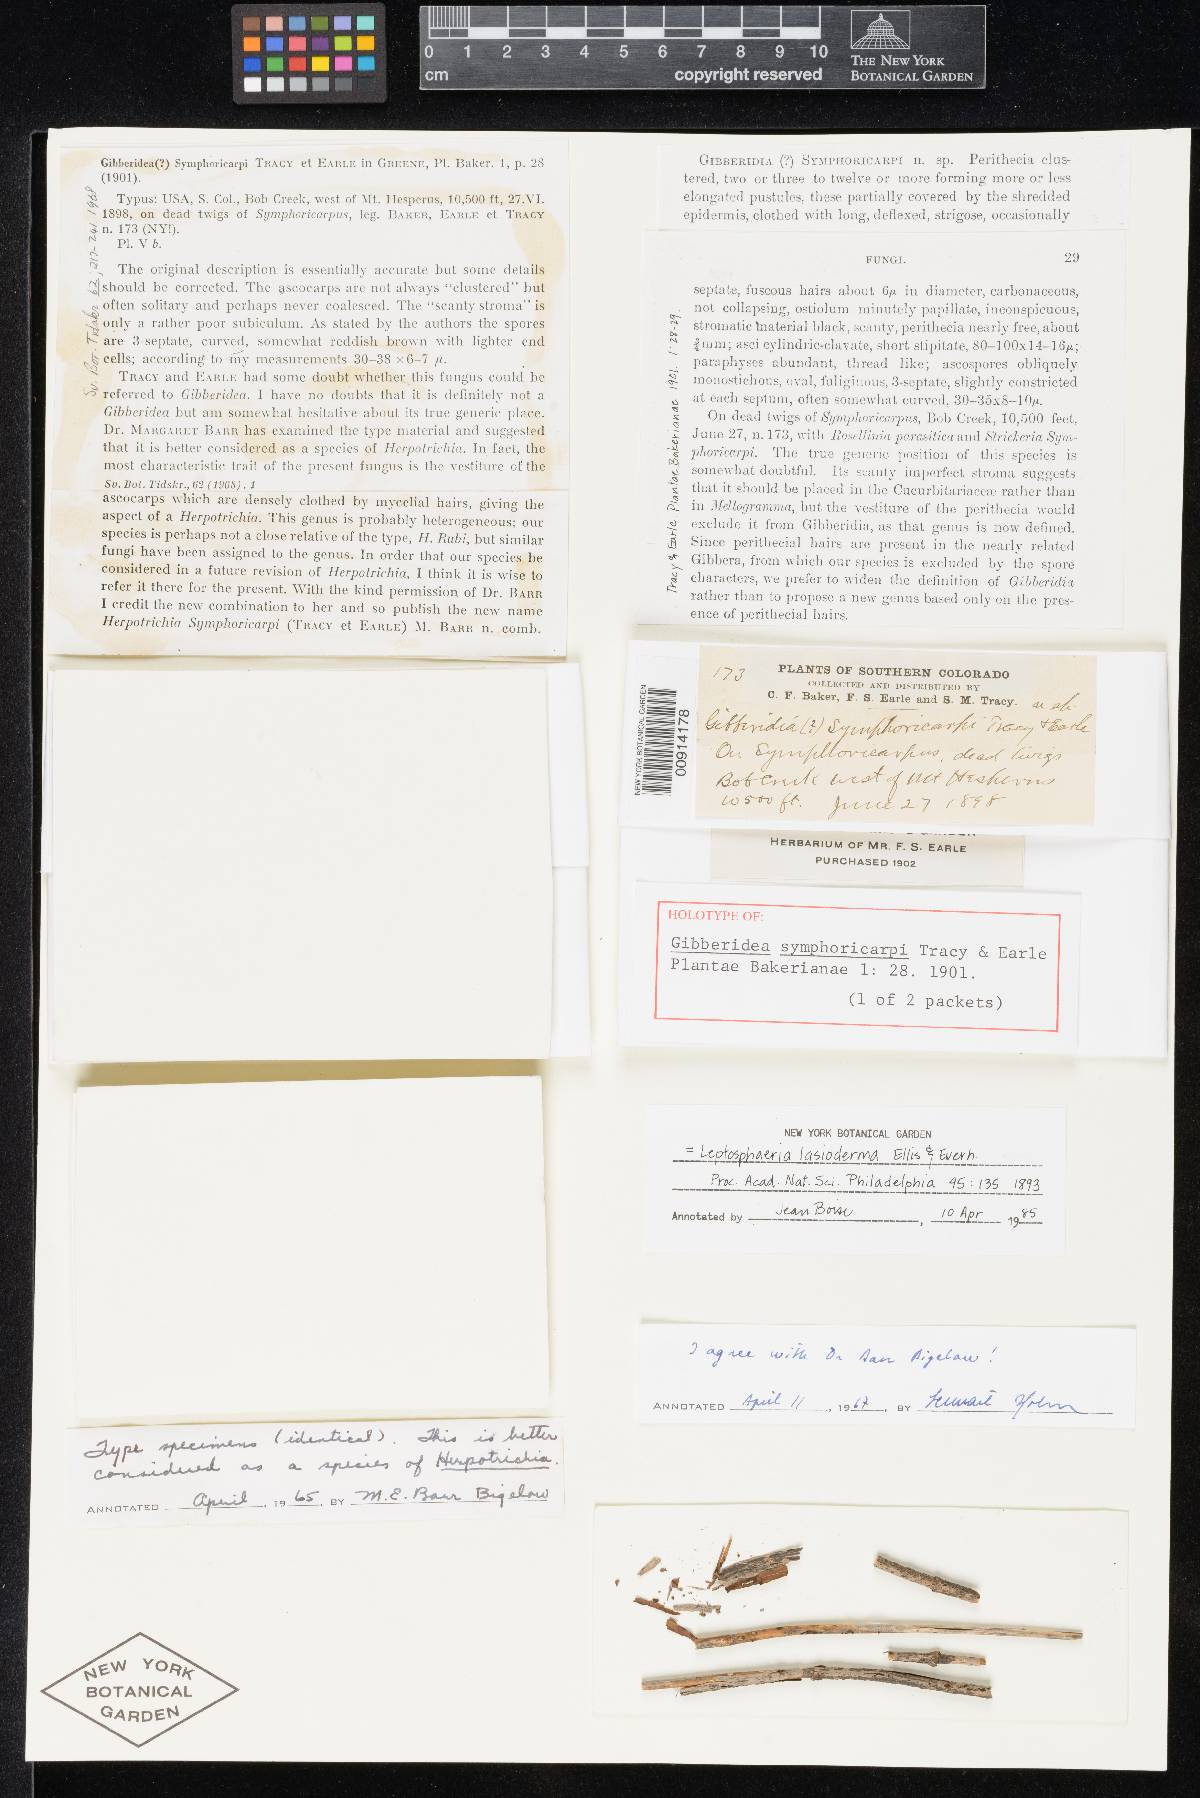 0 1 2 3 4 5 6 7 8 9 10
cm
copyright reserved
THE NEW YORK
BOTANICAL GARDEN
Gibberidea(?) Symphoricarpi TRACY et EARLE in GREENE, Pl. Baker. 1, p. 28
(1901).
Typus: USA, S. Col., Bob Creek, west of Mt. Hesperus, 10,500 ft, 27.VI.
1898, on dead twigs of Symphoricarpus, leg. BAKER, EARLE et TRACY
n. 173 (NY!).
Pl. V b.
The original description is essentially accurate but some details
should be corrected. The ascocarps are not always "clustered" but
often solitary and perhaps never coalesced. The "scanty stroma" is
only a rather poor subiculum. As stated by the authors the spores
are 3-septate, curved, somewhat reddish brown with lighter end
cells; according to my measurements 30–38 × 6–7 μ.
TRACY and EARLE had some doubt whether this fungus could be
referred to Gibberidea. I have no doubts that it is definitely not a
Gibberidea but am somewhat hesitative about its true generic place.
Dr. MARGARET BARR has examined the type material and suggested
that it is better considered as a species of Herpotrichia. In fact, the
most characteristic trait of the present fungus is the vestiture of the
Sv. Bot. Tidskr., 62 (1968). 1
ascocarps which are densely clothed by mycelial hairs, giving the
aspect of a Herpotrichia. This genus is probably heterogeneous; our
species is perhaps not a close relative of the type, H. Rubi, but similar
fungi have been assigned to the genus. In order that our species be
considered in a future revision of Herpotrichia, I think it is wise to
refer it there for the present. With the kind permission of Dr. BARR
I credit the new combination to her and so publish the new name
Herpotrichia Symphoricarpi (TRACY et EARLE) M. BARR n. comb.
Sv. Bot. Tidskr 62; 217-241 1968
GIBBERIDIA (?) SYMPHORICARPI n. sp. Perithecia clus-
tered, two or three to twelve or more forming more or less
elongated pustules, these partially covered by the shredded
epidermis, clothed with long, deflexed, strigose, occasionally
FUNGI. 29
septate, fuscous hairs about 6μ in diameter, carbonaceous,
not collapsing, ostiolum minutely papillate, inconspicuous,
stromatic material black, scanty, perithecia nearly free, about
mm; asci cylindric-clavate, short stipitate, 80–100x14–16μ;
paraphyses abundant, thread like; ascospores obliquely
monostichous, oval, fuliginous, 3-septate, slightly constricted
at each septum, often somewhat curved, 30–35x8–10μ.
On dead twigs of Symphoricarpus, Bob Creek, 10,500 feet,
June 27, n. 173, with Rosellinia parasitica and Strickeria Sym-
phoricarpi. The true generic position of this species is
somewhat doubtful. Its scanty imperfect stroma suggests
that it should be placed in the Cucurbitariaceæ rather than
in Mellogramma, but the vestiture of the perithecia would
exclude it from Gibberidia, as that genus is now defined.
Since perithecial hairs are present in the nearly related
Gibbera, from which our species is excluded by the spore
characters, we prefer to widen the definition of Gibberidia
rather than to propose a new genus based only on the pres-
ence of perithecial hairs.
Tracy & Earle Plantae Bakerianae 1901. 1:28-29.
NEW YORK BOTANICAL GARDEN
00914178
173
PLANTS OF SOUTHERN COLORADO
COLLECTED AND DISTRIBUTED BY
C. F. Baker, F. S. Earle and S. M. Tracy.
n. sp.
Gibberidia (?) Symphoricarpi Tracy & Earle
On Symphoricarpus, dead twigs
Bob Creek west of Mt Hesperus
10500 ft. June 27 1898
HERBARIUM OF MR. F. S. EARLE
PURCHASED 1902
HOLOTYPE OF:
Gibberidea symphoricarpi Tracy & Earle
Plantae Bakerianae 1: 28. 1901.
(1 of 2 packets)
NEW YORK BOTANICAL GARDEN
= Leptosphaeria lasioderma Ellis & Everh.
Proc. Acad. Nat. Sci. Philadelphia 45: 135 1893
Annotated by Jean Boise, 10 Apr 1985
I agree with Dr Barr Bigelow!
ANNOTATED April 11, 1967, BY Lennart Holm
Type specimens (identical). This is better
considered as a species of Herpotrichia.
ANNOTATED April, 1965, BY M.E. Barr Bigelow
NEW YORK
BOTANICAL
GARDEN